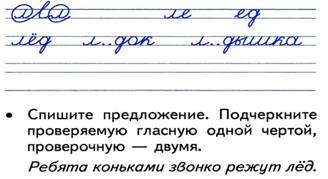 лАл ле ед
лёд л..док л..дышка
• Спишите предложение. Подчеркните
проверяемую гласную одной чертой,
проверочную — двумя.
Ребята коньками звонко режут лёд.